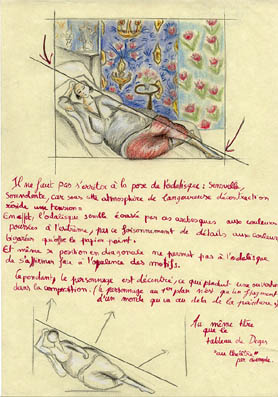 Il ne faut pas s'arrêter à la pose de l'odalisque : Sensuelle,
somnolente, car sous cette atmosphère de langoureuse décontraction
réside une tension.
En effet, l'odalisque semble écrasée par ces arabesques aux couleurs
poussées à l'extrême, par le foisonnement de détails aux couleurs
bigarrées qu'offre le papier peint.
Et même sa position en diagonale ne permet pas à l'odalisque
de s'affirmer face à l'opulence des motifs.
Cependant, le personnage est décentré, ce qui produit une ouverture
dans la composition. (le personnage au 1er plan n'est qu'un fragment
d'un monde qui va au delà de la peinture)
Au même titre
que le
tableau de Degas
"au théâtre"
par exemple.